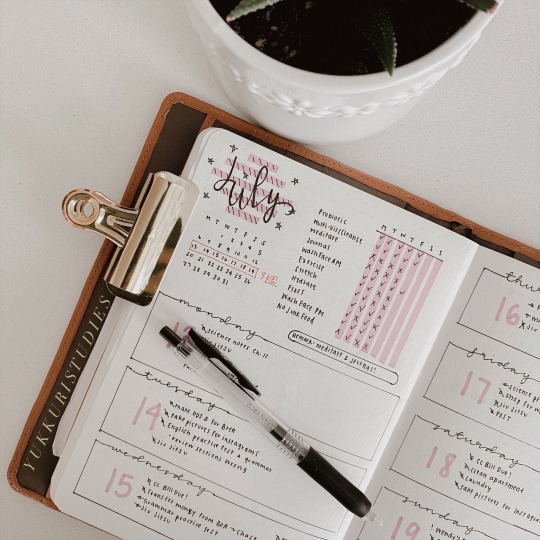 July
M T W T F S S
1 2 3 4 5
6 7 8 9 10 11 12
13 14 15 16 17 18 19
20 21 22 23 24 25 26
27 28 29 30 31
Probiotic
Multi-Vit/Cleanse
meditate
Journal
Wash Face AM
Exercise
Stretch
Hydrate
Floss
Wash Face PM
No Junk Food
M T W T F S S
Remark: meditate & journal!
monday
13
Science notes Ch. 11
Jiu Jitsu
tuesday
14
take pictures for Instagram!
English practice test & grammar
review sections wrong
Jiu Jitsu
wednesday
15
CC Bill Due!
Transfer money from BOA → Chase
Grammar practice test
Jiu Jitsu
16
friday
17
Science
Shop for
Jiu Jitsu
Post
saturday
18
CC Bill Due!
Clean apartment
Laundry
Take pictures for Instagram
sunday
19
Wendy's
YUKKURISTUDIES